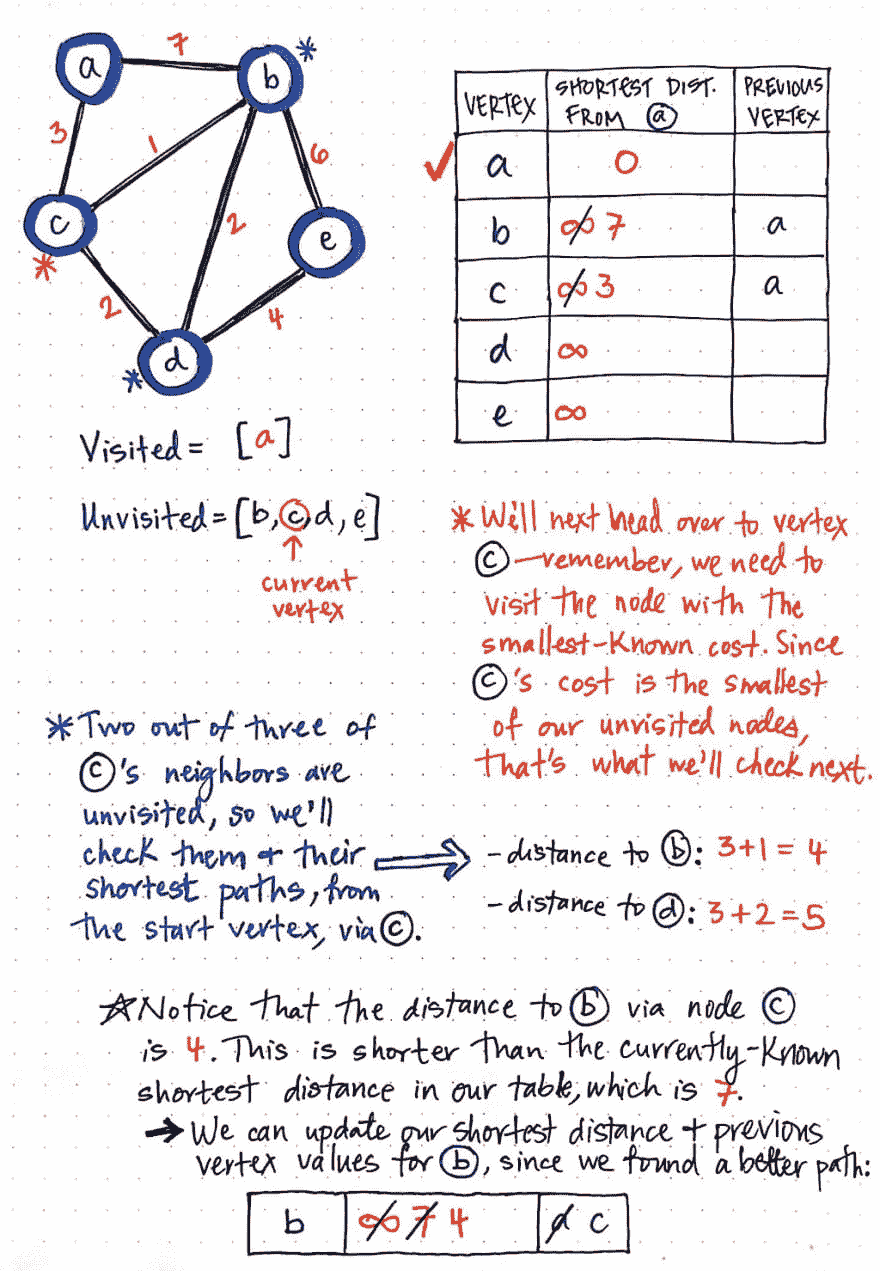 a
7
b
*
3
1
6
c
*
2
e
2
4
d
*
VERTEX
SHORTEST DIST.
FROM a
PREVIOUS
VERTEX
✓
a 0
b ∞ 7 a
c ∞ 3 a
d ∞
e ∞
Visited = [a]
Unvisited = [b, c, d, e]
↑
current
vertex
* We'll next head over to vertex
c—remember, we need to
visit the node with the
smallest-known cost. Since
c's cost is the smallest
of our unvisited nodes,
that's what we'll check next.
* Two out of three of
c's neighbors are
unvisited, so we'll
check them + their
shortest paths, from
the start vertex, via c.
- distance to b: 3+1 = 4
- distance to d: 3+2 = 5
☆ Notice that the distance to b via node c
is 4. This is shorter than the currently-known
shortest distance in our table, which is 7.
→ We can update our shortest distance + previous
vertex values for b, since we found a better path:
b ∞ 7 4 a c